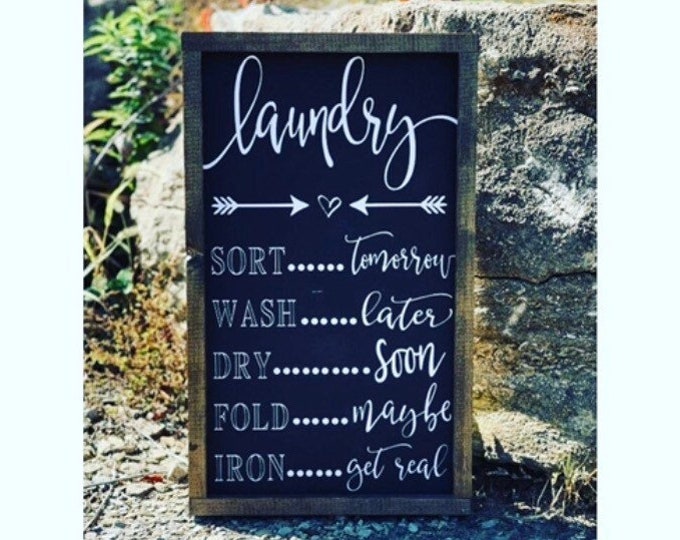 laundry
SORT......tomorrow
WASH......later
DRY..........soon
FOLD......maybe
IRON......get real